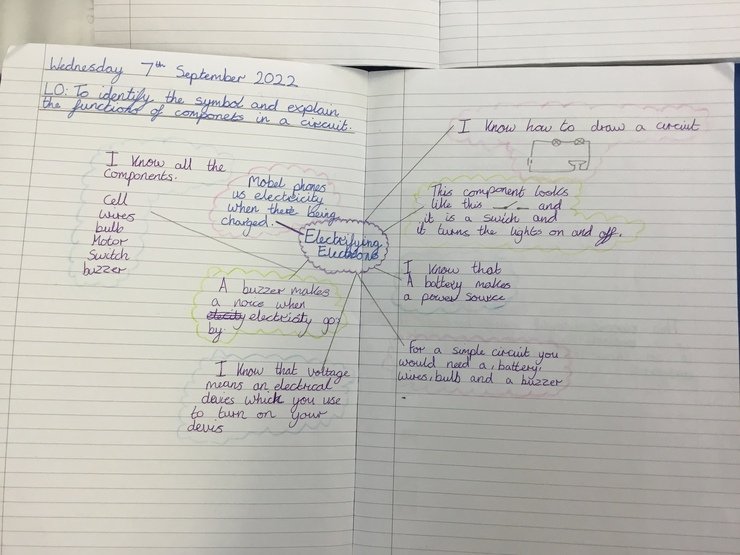 Wednesday 7th September 2022
LO: To identify the symbol and explain
the functions of componets in a circuit.
I know all the
components.
Cell
wires
bulb
Motor
Switch
buzzer
Mobel phones
us electricity
when there being
charged.
Electrifying
Electrons
A buzzer makes
a noice when
electricisty go
by.
I know that voltage
means an electrical
devies which you use
to turn on your
devis
I know how to draw a circuit
This component looks
like this and
it is a swich and
it turns the lights on and off.
I know that
A battery makes
a power source
For a simple circuit you
would need a, battery,
wires, bulb and a buzzer